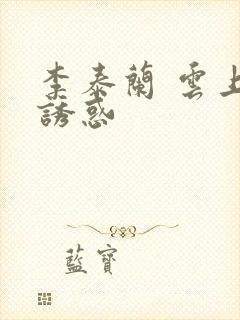 李泰蘭 雲上
誘惑
藍寶